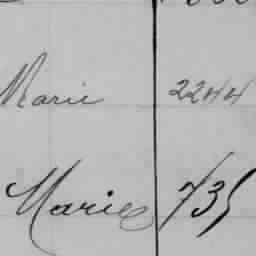 Marie 2244
Marie 735